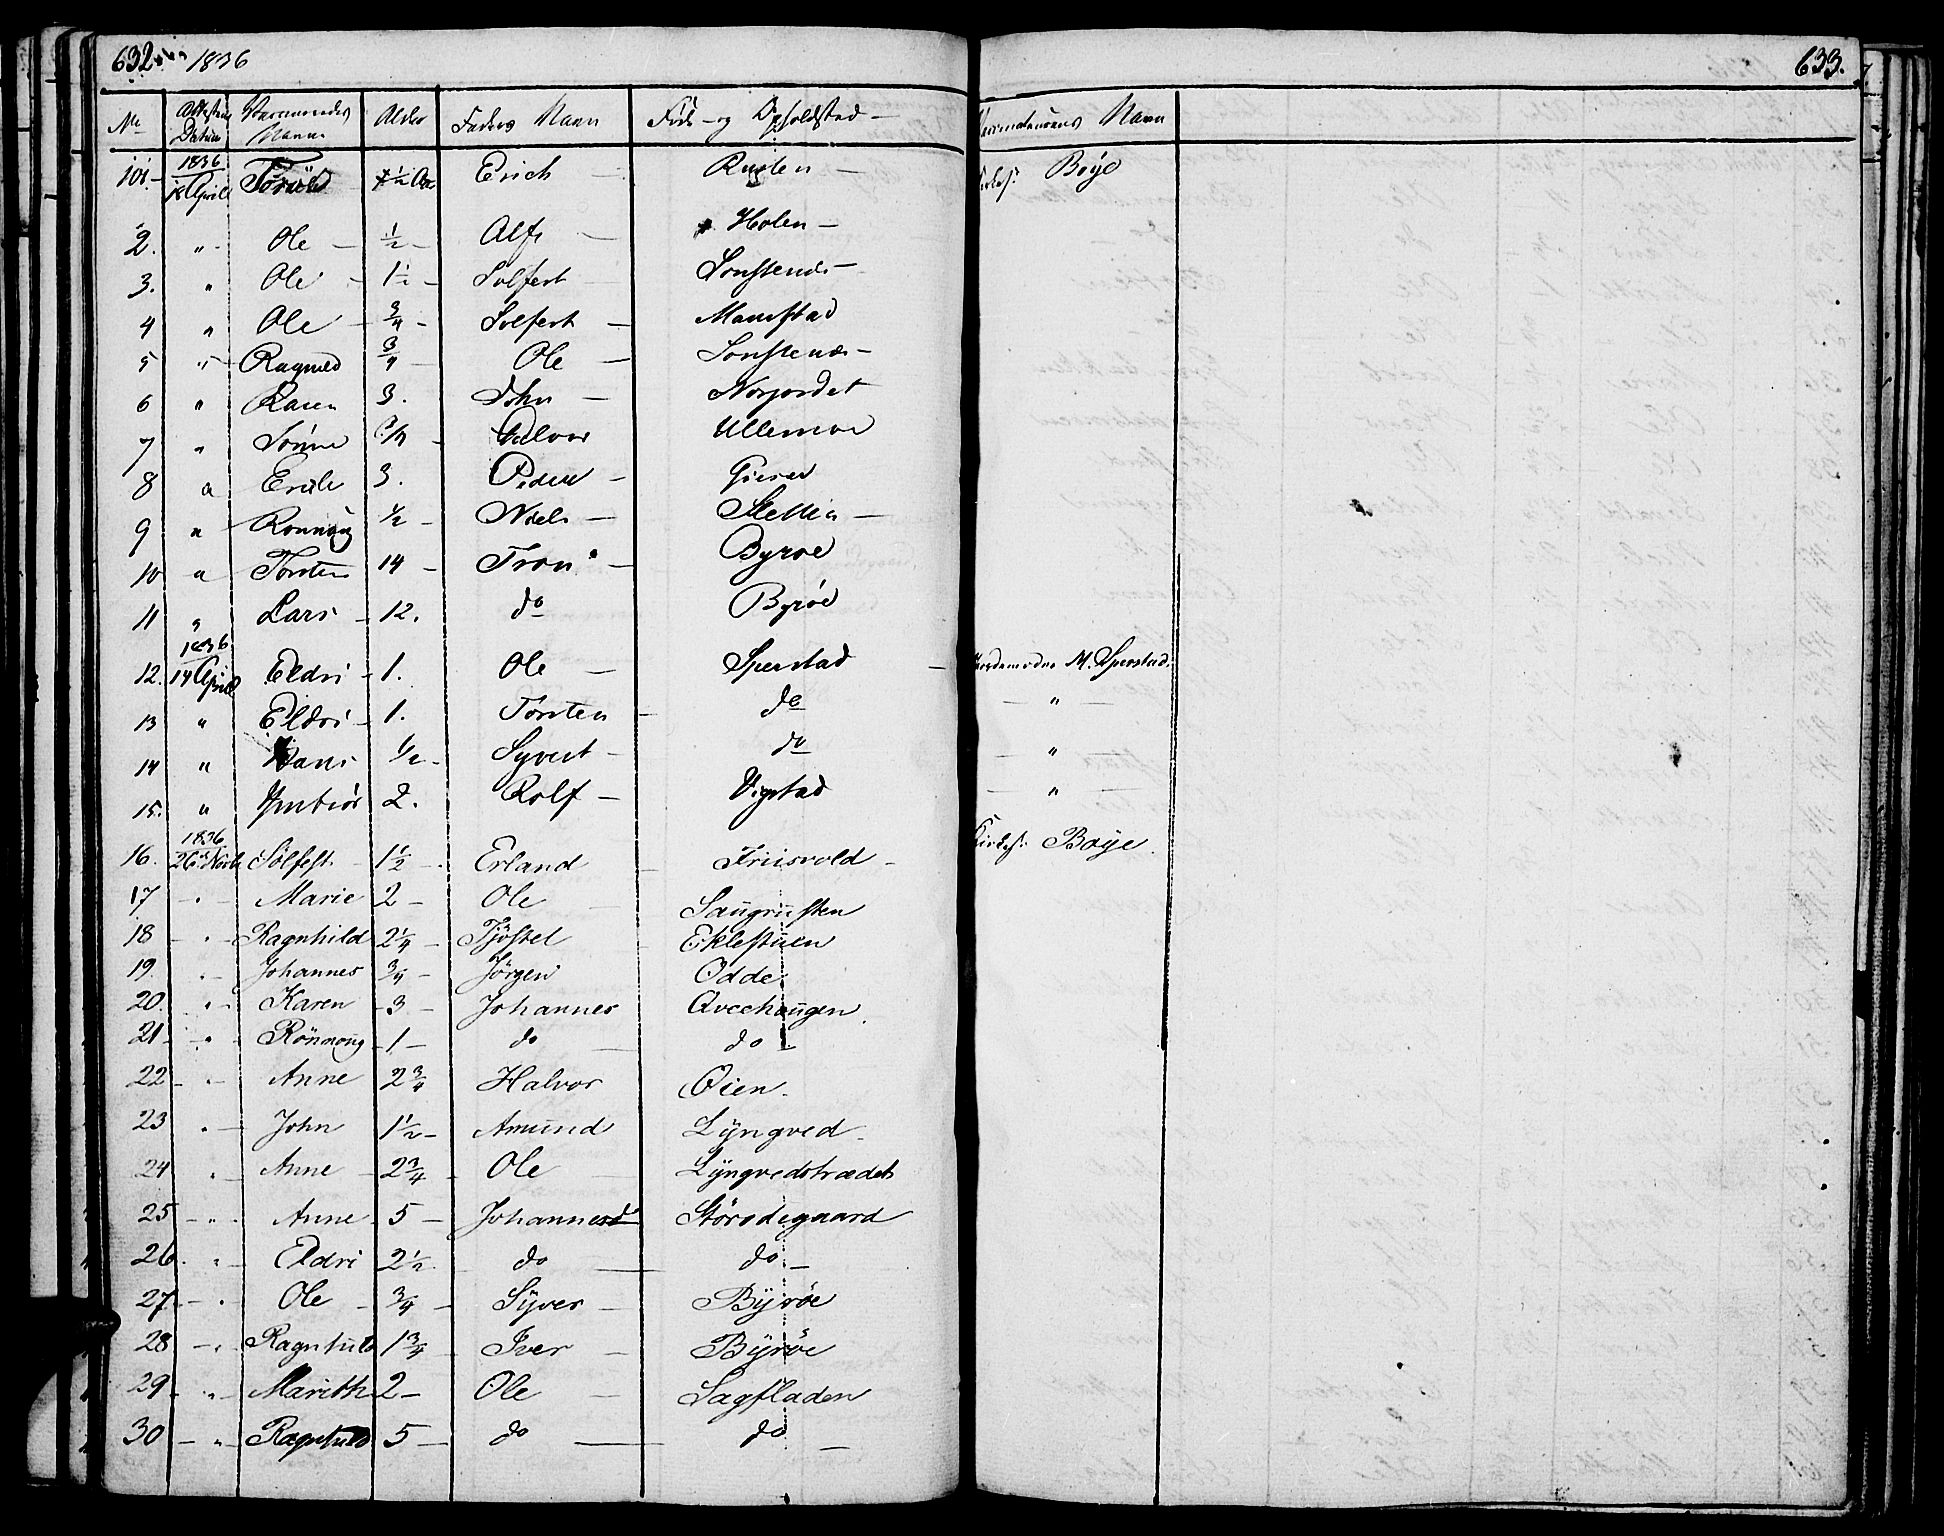 632 1836 633.
No Attestens Datum Navn Alder Faders Navn Føde- og Opholdsted Vaccinateurens Navn
101. 1836 18 April 1/2 Aar Erich Rusten Kirkes. Boye
2. " Ole 1/2 Alf Holen
3. " Ole 1 1/2 Solfest Sonstenes
4 " Ole 3/4 Solfest Maurstad
5 " Ragnild 3/4 Ole Sonstenes
6 " Karen 3. John Norjordet
7 " 3/4 Halvor Ullemoe
8 " 3. Peder
9 " Ronnoug 1/2 Niels Sletten
10 " Torsten 14 Tron Byroe
11 " Lars 12. do Byröe
12. 1836 14 April Eldri 1. Ole Sperstad Jordemoder M. Sperstad
13 " Eldri 1. Torsten do "
14 " Hans 1/2 Syvert do "
15. " 2. Rolf Vigstad "
16. 1836 26 Sölfest 1 1/2 Erland Friisvold Kirkes. Boye.
17 " Marie 2 Ole Saugrusten
18 " Ragnhild 2 1/4 Tjöstel Eklestuen
19. " Johannes 3/4 Jörgen Odde
20. " Karen 3 Johannes Qvechaugen
21 " Rönnoug 1 do do
22 " Anne 2 3/4 Halvor Oien
23 " John 1 1/2 Amund Lyngved
24 " Anne 2 3/4 Ole Lyngvedstrædet
25 " Anne 5 Johannes Störodegaard
26 " Eldri 2 1/2 do do
27 " Ole 3/4 Syver Byröe
28 " Ragnhild 1 3/4 Iver Byröe
29 " Marith 2 Ole Sagfladen
30 " Ragnhild 5 do do